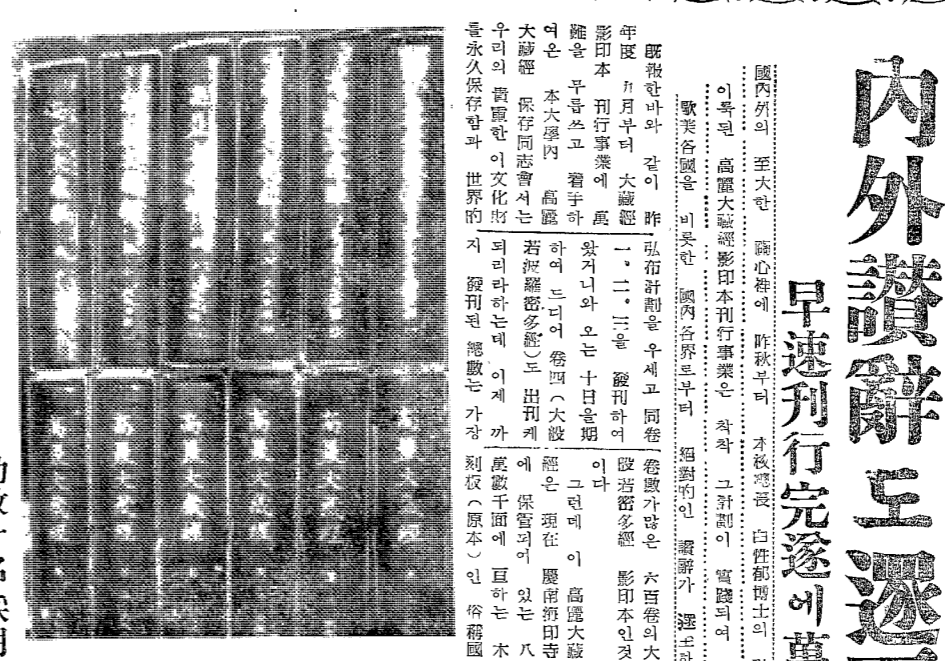 內外讚辭도遝
早速刊行完遂에萬
國內外의 至大한 關心裡에 昨秋부터 本校總長 白性郁博士의
이룩된 高麗大藏經影印本刊行事業은 착착 그計劃이 實踐되여
歐美各國을 비롯한 國內各界로부터 絕對的인 讚辭가 遝至하
旣報한바와 같이 昨
年度 九月부터 大藏經
影印本 刊行事業에 萬
難을 무릅쓰고 着手하
여온 本大學內 高麗
大藏經 保存同志會서는
우리의 貴重한 이文化財
를永久保存함과 世界的
弘布計劃을 우세고 同卷
一。二。三을 發刊하여
왔거니와 오는 十日을期
하여 드디어 卷四(大般
若波羅密多經)도 出刊케
되리라하는데 이제 까
지 發刊된 總數는 가장
卷數가많은 六百卷의大
般若密多經 影印本인것
이다
그런데 이 高麗大藏
經은 現在 慶南海印寺
에 保管되어 있는 八
萬數千面에 亘하는 木
刻板(原本)인 俗稱國